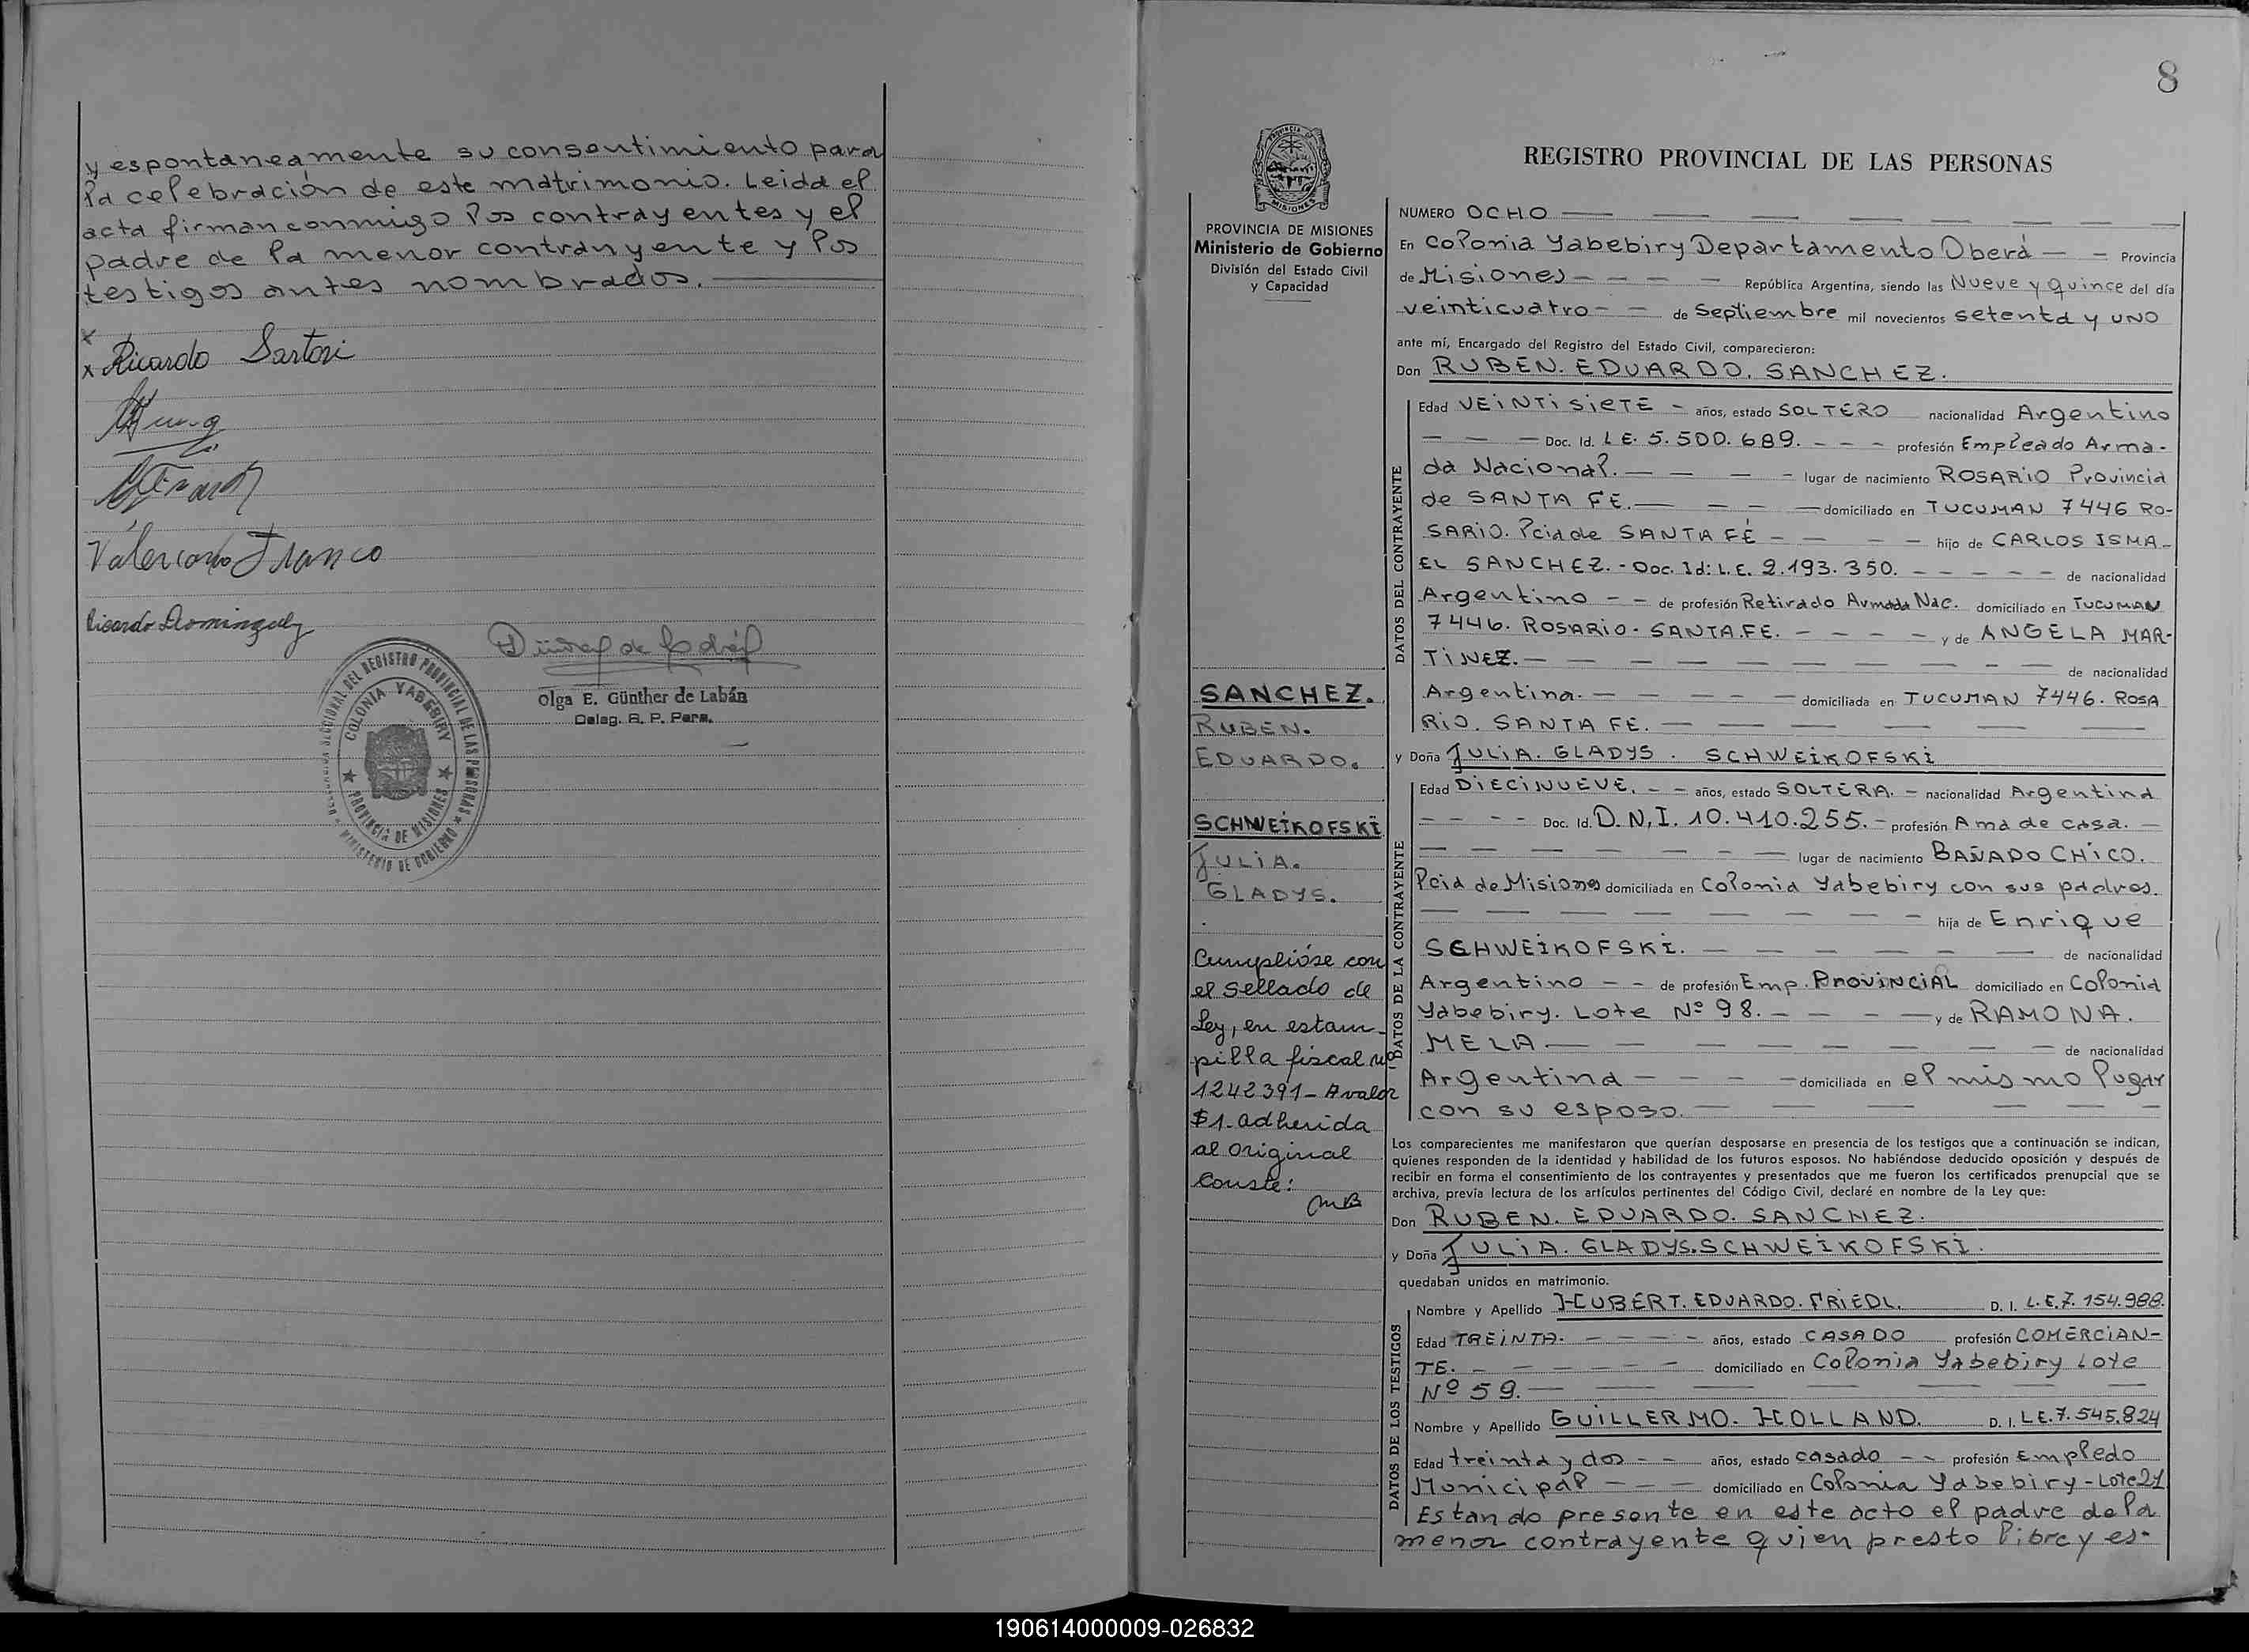 y espontaneamente su consentimiento para
la celebración de este matrimonio. Leida el
acta firman conmigo los contrayentes y el
padre de la menor contranyente y los
testigos antes nombrados.
x
x Ricardo Sartori
Franco
Ricardo Dominguez
Olga E. Günther de Labán
Deleg. R. P. Pers.
REGISTRO PROVINCIAL DE LAS PERSONAS
COLONIA YABEBIRY
PROVINCIA DE MISIONES
MINISTERIO DE GOBIERNO
8
PROVINCIA DE MISIONES
Ministerio de Gobierno
División del Estado Civil
y Capacidad
SANCHEZ.
RUBEN.
EDUARDO.
SCHWEIKOFSKI
JULIA.
GLADYS.
Cumplióse con
el sellado de
Ley, en estam-
pilla fiscal nº
1242391-A valor
$1- adherida
al original
Conste:
REGISTRO PROVINCIAL DE LAS PERSONAS
NUMERO OCHO
En Colonia Yabebiry Departamento Oberá - - Provincia
de Misiones - - - - República Argentina, siendo las Nueve y quince del día
veinticuatro - - de Septiembre mil novecientos setenta y uno
ante mí, Encargado del Registro del Estado Civil, comparecieron:
Don RUBEN. EDUARDO. SANCHEZ.
DATOS DEL CONTRAYENTE
Edad VEINTISIETE - años, estado SOLTERO nacionalidad Argentino
- - - Doc. Id. L E. 5. 500. 689. - - - profesión Empleado Arma-
da Nacional. - - - - lugar de nacimiento ROSARIO Provincia
de SANTA FE. - - - - domiciliado en TUCUMAN 7446 RO-
SARIO. Pcia de SANTA FÉ - - - - hijo de CARLOS ISMA-
EL SANCHEZ. - Doc. Id: L.E. 2.193.350. - - - - - de nacionalidad
Argentino - - de profesión Retirado Armada Nac. domiciliado en TUCUMAN
7446. ROSARIO - SANTA.FE. - - - - y de ANGELA MAR-
TINEZ. - - - - - - - - - - de nacionalidad
Argentina. - - - - - domiciliada en TUCUMAN 7446. ROSA
RIO. SANTA FE. - - - - -
y Doña JULIA. GLADYS. SCHWEIKOFSKI
DATOS DE LA CONTRAYENTE
Edad DIECINUEVE. - - años, estado SOLTERA. - nacionalidad Argentina
- - - - Doc. Id. D. N. I. 10.410.255. - profesión Ama de casa. -
- - - - - - - lugar de nacimiento BAÑADO CHICO.
Pcia de Misiones domiciliada en Colonia Yabebiry con sus padres.
- - - - - - - - hija de Enrique
SCHWEIKOFSKI. - - - - - - de nacionalidad
Argentino - - de profesión Emp. PROVINCIAL domiciliado en Colonia
Yabebiry. Lote Nº 98. - - - - y de RAMONA.
MELA - - - - - - - - de nacionalidad
Argentina - - - - domiciliada en el mismo lugar
con su esposo. - - - - - -
Los comparecientes me manifestaron que querían desposarse en presencia de los testigos que a continuación se indican,
quienes responden de la identidad y habilidad de los futuros esposos. No habiéndose deducido oposición y después de
recibir en forma el consentimiento de los contrayentes y presentados que me fueron los certificados prenupcial que se
archiva, previa lectura de los artículos pertinentes del Código Civil, declaré en nombre de la Ley que:
Don RUBEN. EDUARDO. SANCHEZ.
y Doña JULIA. GLADYS. SCHWEIKOFSKI.
quedaban unidos en matrimonio.
DATOS DE LOS TESTIGOS
Nombre y Apellido HUBERT. EDUARDO. FRIEDL. D. I. L.E. 7. 154.988.
Edad TREINTA. - - - - años, estado CASADO profesión COMERCIAN-
TE. - - - - - - domiciliado en Colonia Yabebiry Lote
Nº 59. - - - - - -
Nombre y Apellido GUILLERMO. HOLLAND. D. I. LE. 7. 545.824
Edad treinta y dos - - años, estado casado - - profesión Empledo
Municipal - - - domiciliado en Colonia Yabebiry - Lote 21
Estando presente en este acto el padre de la
menor contrayente quien presto libre y es-
190614000009-026832